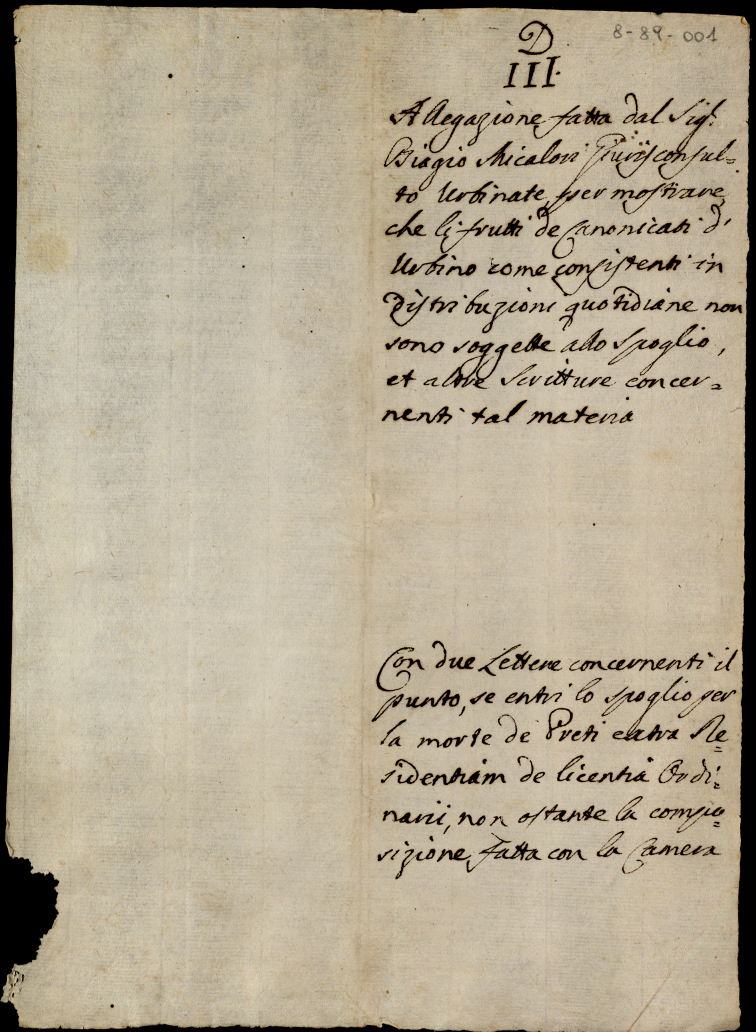 8-89-001
D
III.
Allegazione fatta dal Sig.r
Biagio Micalori Giurisconsul=
to Urbinate per mostrare
che li frutti de Canonicati d'
Urbino come consistenti in
Distribuzioni quotidiane non
sono soggette allo spoglio,
et altre Scritture concer=
nenti tal materia
Con due Lettere concernenti il
punto, se entri lo spoglio per
la morte de Preti extra Re=
sidentiam de licentia Ordi=
narii, non ostante la compo=
sizione fatta con la Camera